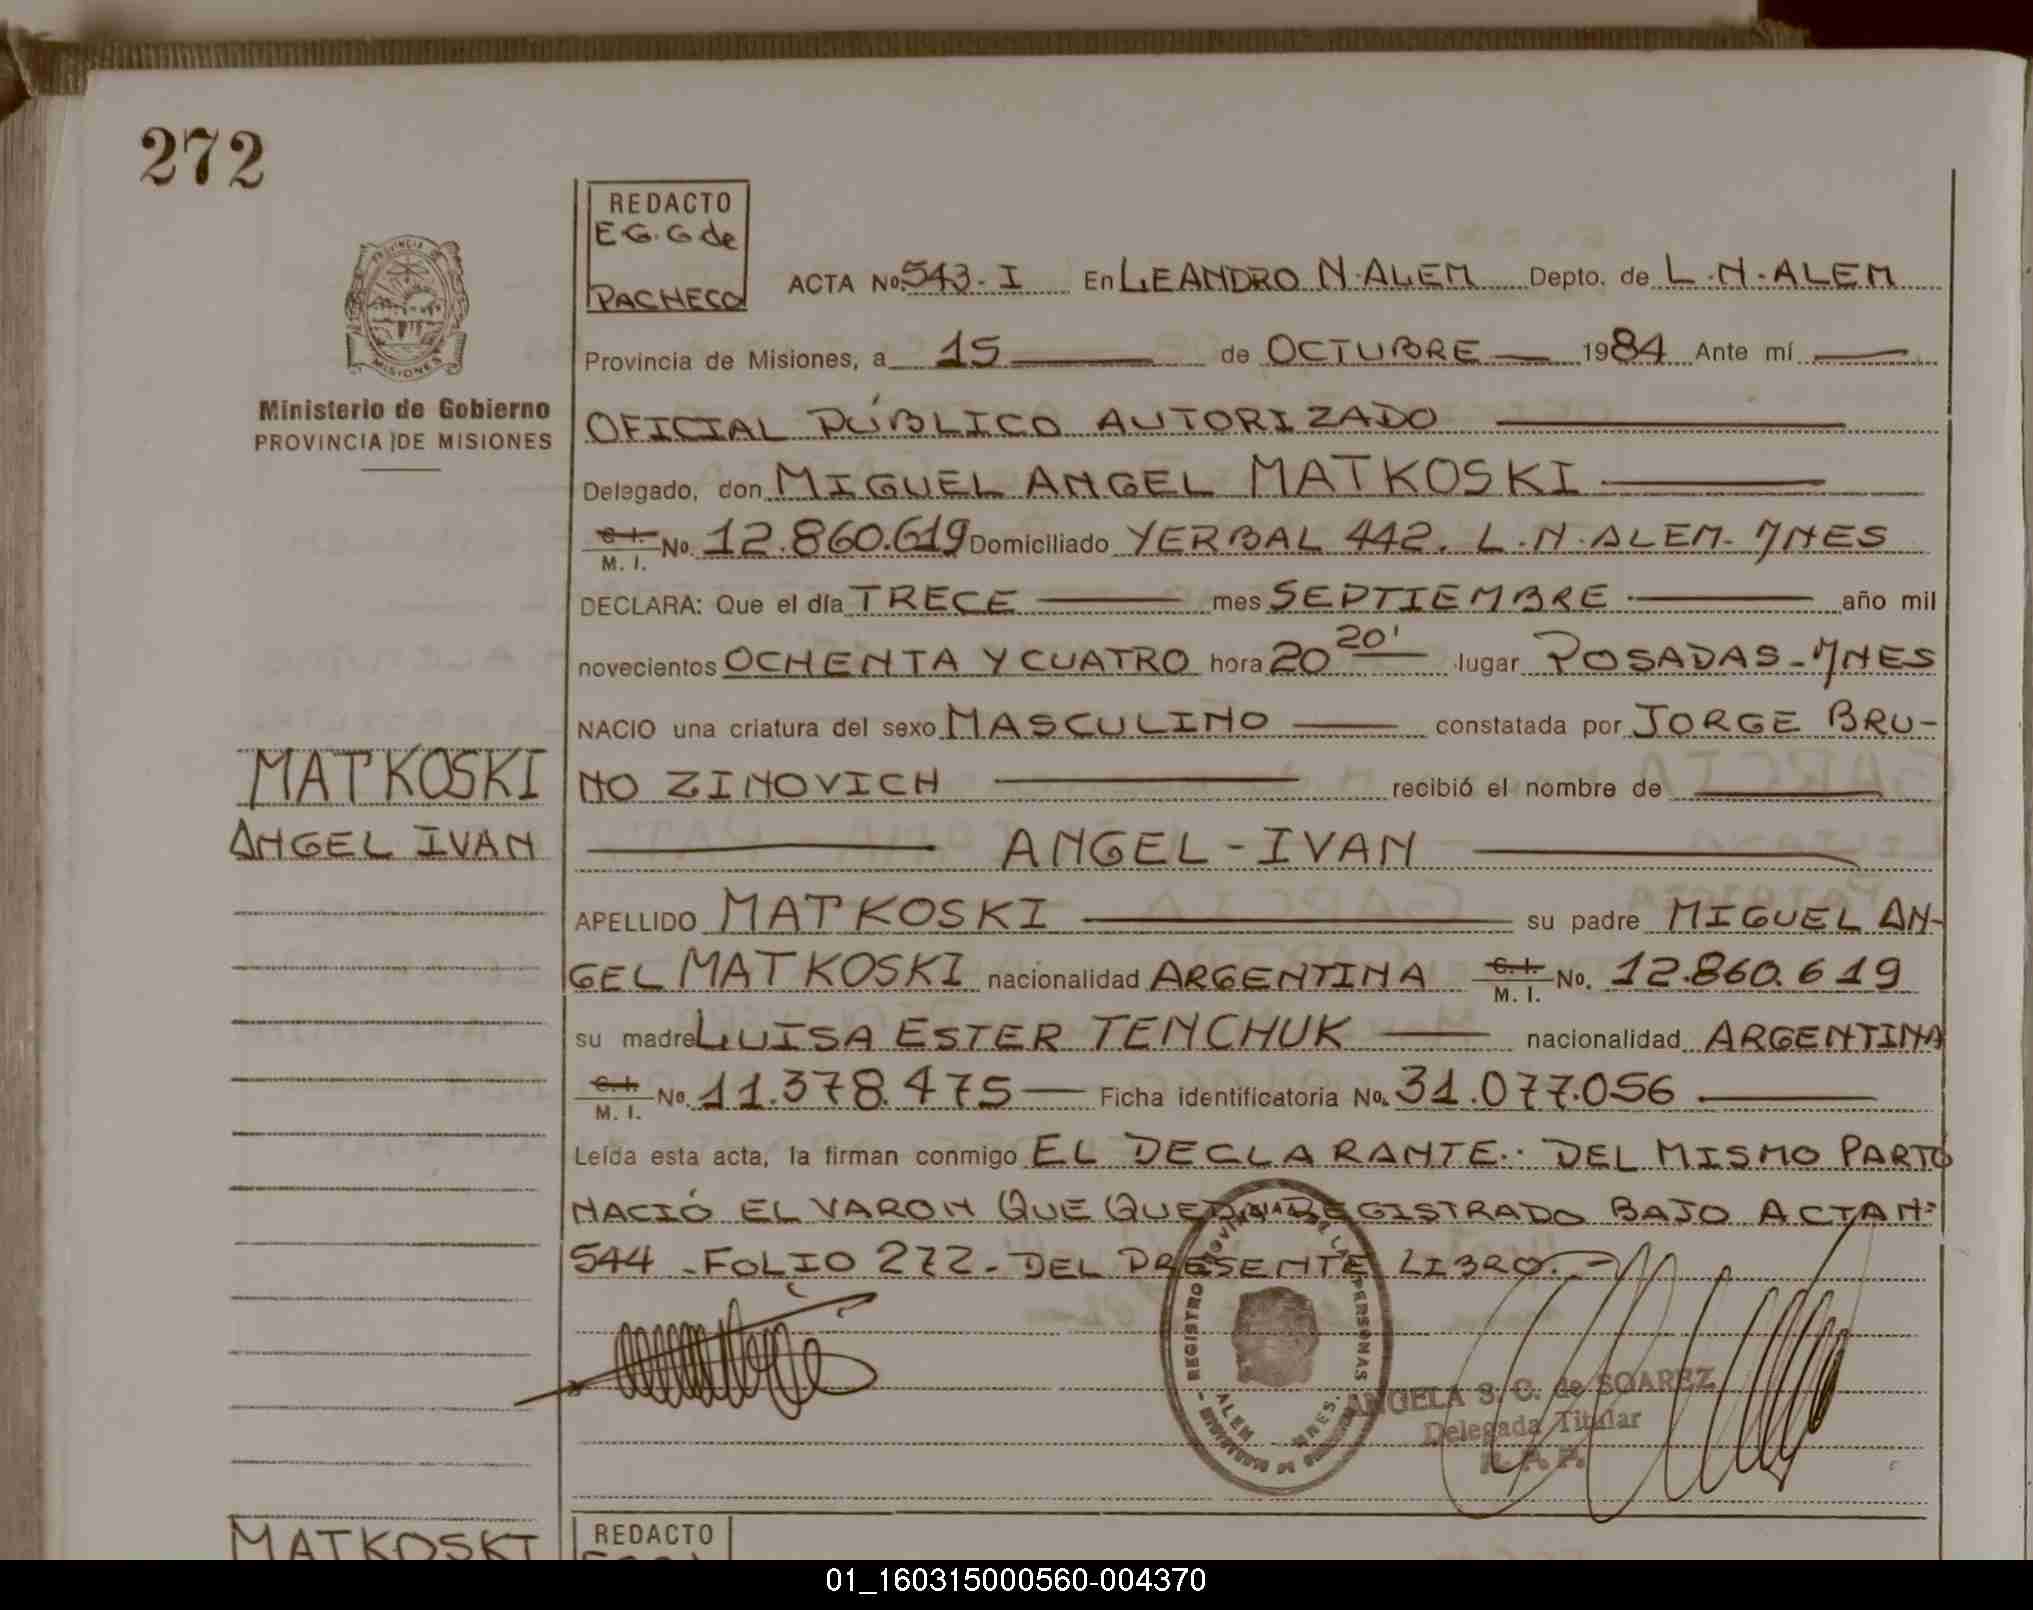 272
REDACTO
E G. G de
PACHECO
ACTA No. 543 - I En LEANDRO N. ALEM Depto. de L. N. ALEM
PROVINCIA DE
MISIONES
Provincia de Misiones, a 15 de OCTUBRE 1984 Ante mí
Ministerio de Gobierno
PROVINCIA DE MISIONES
OFICIAL PÚBLICO AUTORIZADO
Delegado, don MIGUEL ANGEL MATKOSKI
C. I.
M. I. No. 12.860.619 Domiciliado YERBAL 442. L. N. ALEM - MNES
DECLARA: Que el día TRECE mes SEPTIEMBRE año mil
novecientos OCHENTA Y CUATRO hora 20 20' lugar POSADAS - MNES
NACIO una criatura del sexo MASCULINO constatada por JORGE BRU-
NO ZINOVICH recibió el nombre de
MATKOSKI
ANGEL IVAN
ANGEL - IVAN
APELLIDO MATKOSKI su padre MIGUEL AN-
GEL MATKOSKI nacionalidad ARGENTINA C. I.
M. I. No. 12.860.619
su madre LUISA ESTER TENCHUK nacionalidad ARGENTINA
C. I.
M. I. No. 11.378.475 Ficha identificatoria No. 31.077.056
Leída esta acta, la firman conmigo EL DECLARANTE.. DEL MISMO PARTO
NACIÓ EL VARON QUE QUEDA REGISTRADO BAJO ACTA Nº
544 - FOLIO 272 - DEL PRESENTE LIBRO.
REGISTRO PROVINCIAL DE LAS PERSONAS
ALEM MNES.
ANGELA S. C. de SOAREZ
Delegada Titular
MATKOSKI
REDACTO
01_160315000560-004370